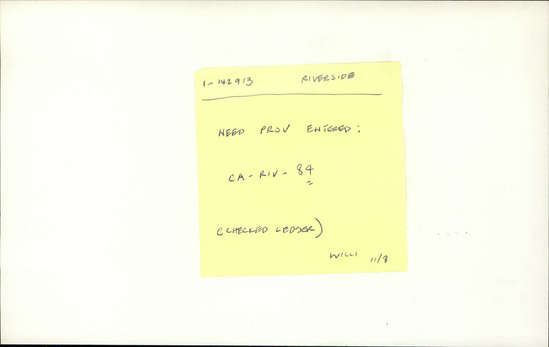 1-142913 RIVERSIDE
NEED PROV ENTERED:
CA-RIV-84
(CHECKED LEDGER)
WILLI 11/8